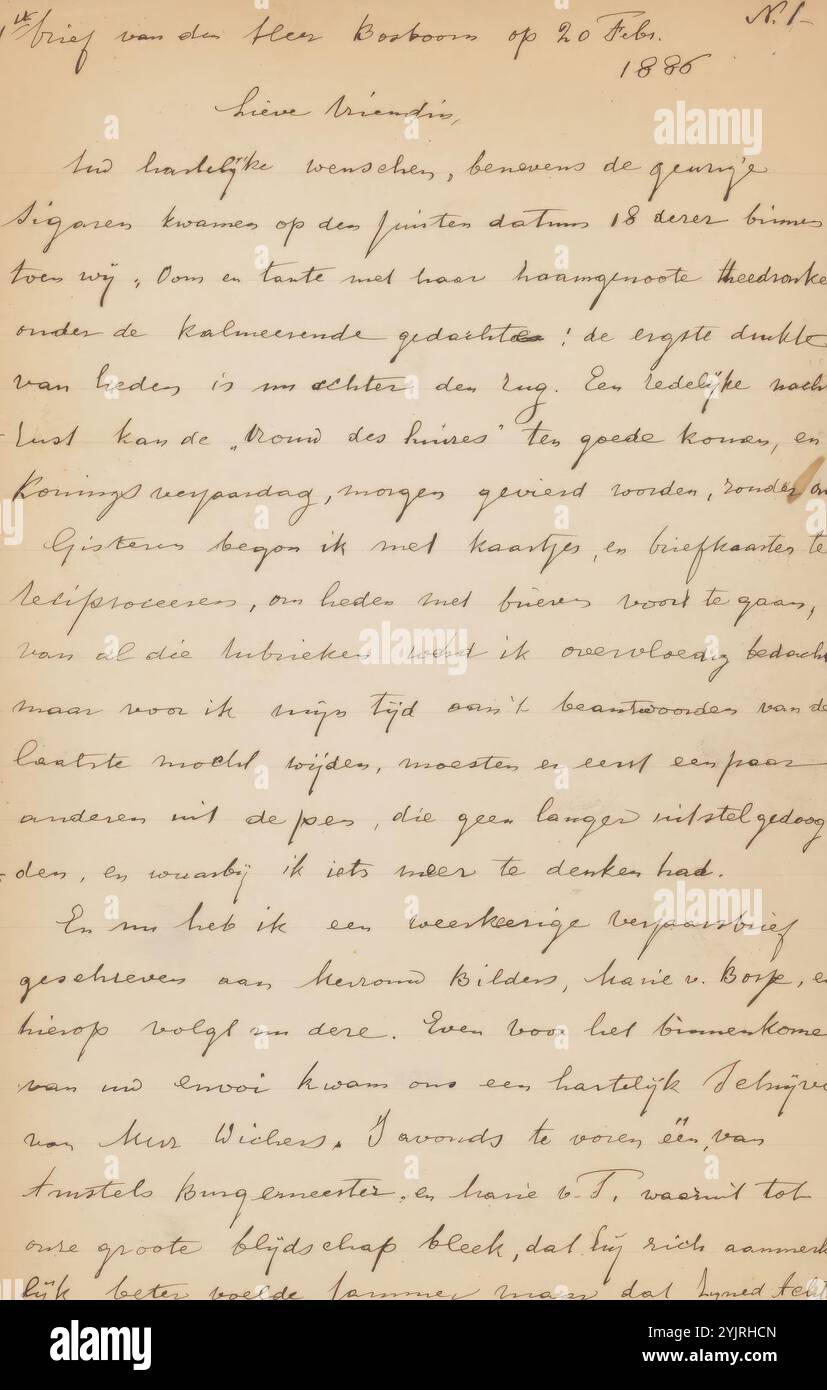 1e brief van den Heer Bosboom op 20 Febr. N. 1-
1886
Lieve Vriendin,
Uw hartelijke wenschen, benevens de geurige
Sigaren kwamen op den juisten datum 18 dezer binnen
toen wij, Oom en tante met haar naamgenoote theedronke
onder de kalmeerende gedachte: de ergste drukte
van heden is nu achter den rug. Een redelijke nach
rust kan de „Vrouw des huizes" ten goede komen, en
Konings verjaardag, morgen gevierd worden, zonder
Gisteren begon ik met kaartjes, en briefkaarten te
reciproceeren, om heden met brieven voort te gaan,
van al die rubrieken werd ik overvloedig bedacht
maar voor ik mijn tijd aan 't beantwoorden van de
laatste mocht wijden, moesten er eerst een paar
anderen uit de pen, die geen langer uitstel gedoog
den, en waarbij ik iets meer te denken had.
En nu heb ik een weerkeerige verjaarsbrief
geschreven aan Mevrouw Bilders, Marie v. Bosse, en
hierop volgt nu deze. Even voor het binnenkome
van uw envoi kwam ons een hartelijk Schrijve
van Mevr Wichers. 'S avonds te voren één, van
Amstels Burgemeester, en Marie v. T. waaruit tot
onze groote blijdschap bleek, dat hij zich aanmerk
lijk beter voelde jammer maar dat
alamy
a
Image ID: 2YJRHCN
www.alamy.com